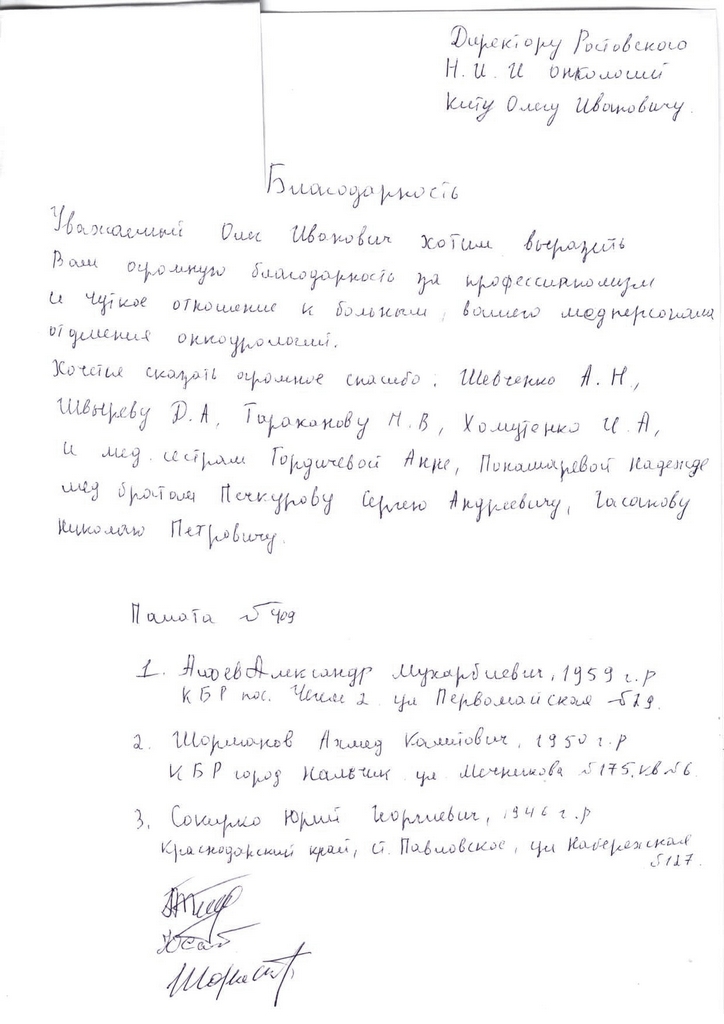 Директору Ростовского
Н.И.И онкологии
Киту Олегу Ивановичу.
Благодарность
Уважаемый Олег Иванович хотим выразить
Вам огромную благодарность за профессианолизм
и чуткое отношение к больным, вашего медперсонала
отделения онкоурологии.
Хочется сказать огромное спасибо: Шевченко А.Н.,
Швыреву Д.А, Тараканову М.В, Хомутенко И.А,
и мед. сестрам Гордичевой Анне, Понамаревой Надежде
мед братьям Печкурову Сергею Андреевичу, Гасанову
Николаю Петровичу.
Палата №409
1. Александр Мухарбиевич, 1959 г.р
КБР пос. Чегем 2 ул Первомайская №19.
2. Шорманов Ахмед Хамитович, 1950 г.р
КБР город Нальчик ул. Мечникова №175, кв №6.
3. Сокирко Юрий Георгиевич, 1946 г.р
Краснодарский край, ст. Павловское, ул Набережная
№127.